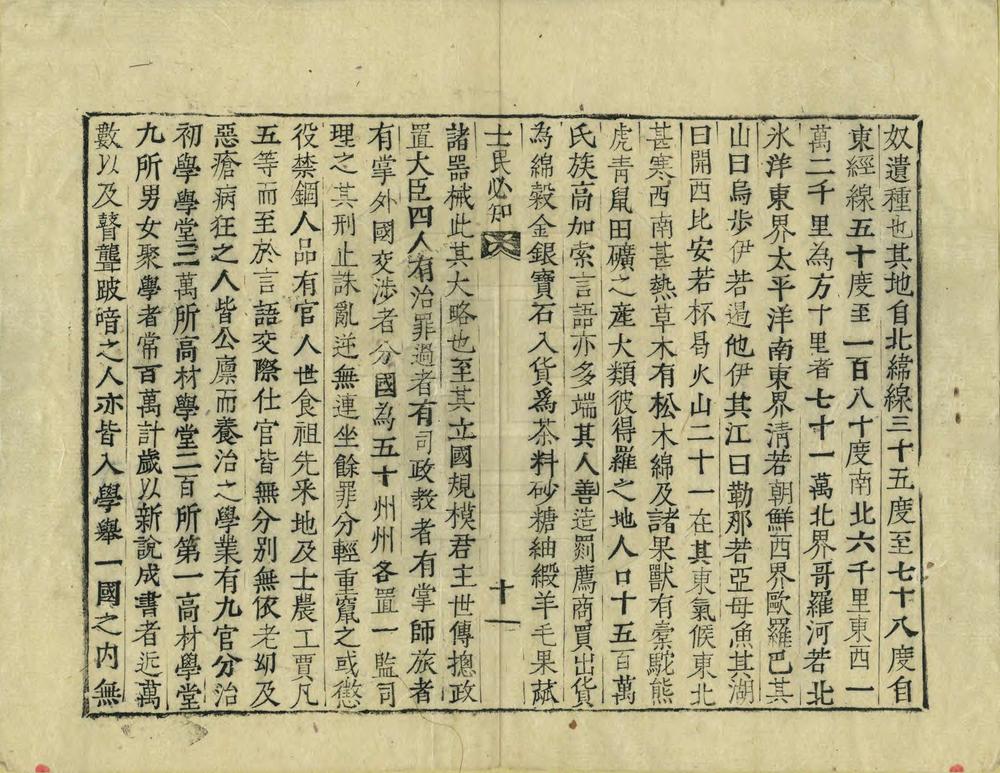 奴遺種也其地自北緯線三十五度至七十八度自
東經線五十度至一百八十度南北六千里東西一
萬二千里為方十里者七十一萬北界哥羅河若北
氷洋東界太平洋南東界淸若朝鮮西界歐羅巴其
山曰烏步伊若遏他伊其江曰勒那若亞母魚其湖
曰開西比安若杯曷火山二十一在其東氣候東北
甚寒西南甚熱草木有松木綿及諸果獸有橐駝熊
虎靑鼠田礦之産大類彼得羅之地人口十五百萬
氏族高加索言語亦多端其人善造罰薦商買出貨
為綿穀金銀寶石入貨爲茶料砂糖紬緞羊毛果蓏
士民必知 十一
諸器械此其大略也至其立國規模君主世傳摠政
置大臣四人有治罪過者有司政教者有掌師旅者
有掌外國交涉者分國為五十州州各置一監司
理之其刑止誅亂逆無連坐餘罪分輕重竄之或懲
役禁錮人品有官人世食祖先采地及士農工賈凡
五等而至於言語交際仕官皆無分别無依老幼及
惡瘡病狂之人皆公廪而養治之學業有九官分治
初學學堂三萬所高材學堂二百所第一高材學堂
九所男女聚學者常百萬計歲以新說成書者近萬
數以及聾聾跛喑之人亦皆入學舉一國之内無